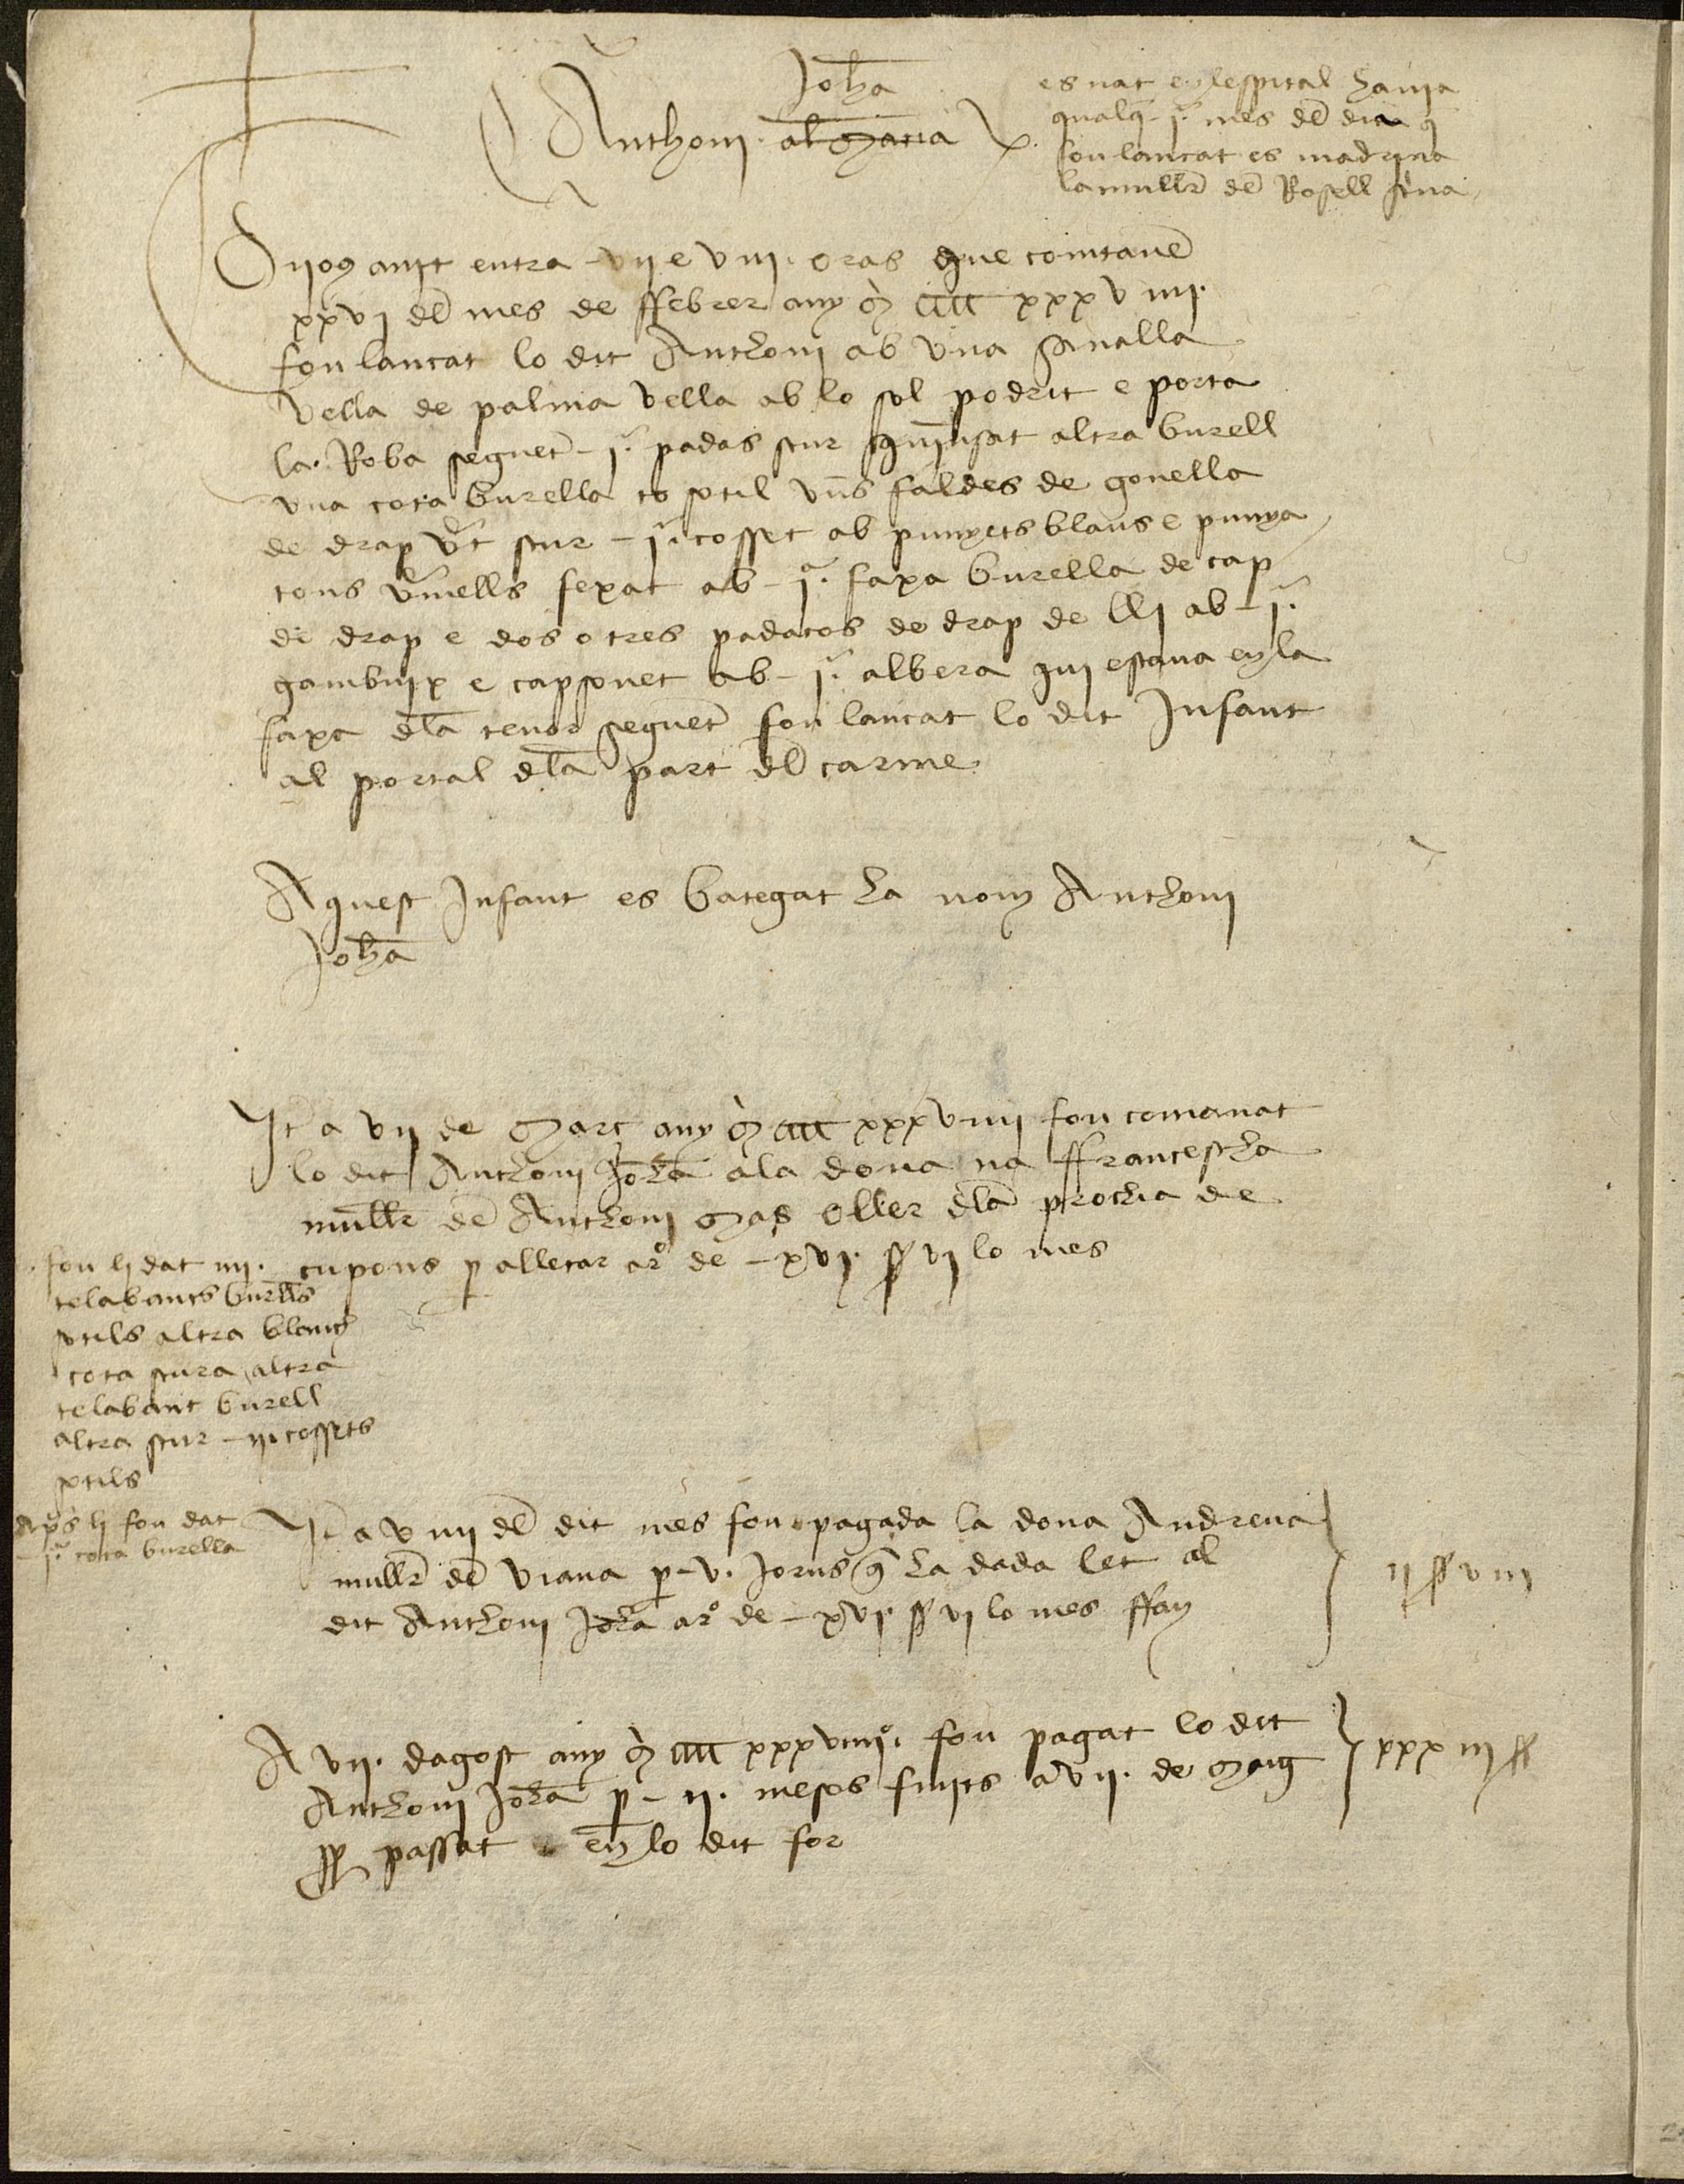 Johā
Anthoni al maria
es nat en lespital hauia
qualq̄ j.ª mes del dia q̄
fou lancat es madrina
la mullr̄ dē Rosell
Dijog anit entra vij e viij. oras que comtauē
xxvj dl̄ mes de ffebrer any M CCCC xxxviiij.
fou lancat lo dit Anthoni ab vna sanalla
vella de palma vella ab lo sol podrit e porta
la Roba seguēt j. padas scur altra burell
vna cota burella sotil vn̄s faldes de gonella
de drap vt scur j. cosset ab punyets blaus e punya
tons vmells fexat ab j.ª faxa burella de cap
de drap e dos o tres padacos de drap de lli ab j.
gambuix e capsonet ab j. albera qui estaua en la
faxa dla tenor seguet fou lancat lo dit Infant
al portal dla part dl̄ carme
Aquest Infant es bategat ha nom Anthoni
Johā
It̄ a vij de Marc any M CCCC xxxviiij fou comanat
lo dit Anthoni Johā a la dona na ffrancescha
mullr̄ dē Anthoni Mas oller dla prochia de
cupons p alletar ar̊ de xvj. ss vj lo mes
fou li dat iiij.
telabants burells
sotils altra blanch
cota scura altra
telabant burell
altra scur iij. cossets
sotils
Ap̄s li fou dat
j.ª cota burella
It̄ a viiij dl̄ dit mes fou pagada la dona Andreua
mullr̄ dē Viana p v. jorns q̄ ha dada let al
dit Anthoni Johā ar̊ de xvj. ss vj lo mes ffan
ij ss viiij
A vij. dagost any M CCCC xxxviiij. fou pagat lo dit
Anthoni Johā p ij. mesos finits a vij. de Maig
pp passat en lo dit for
xxxiij ss